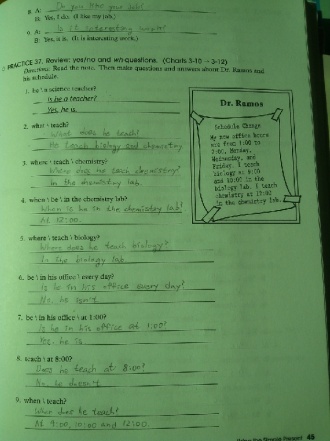 A: Do you like your job?
B: Yes, I do. (I like my job.)
A: Is it interesting work?
B: Yes, it is. (It is interesting work.)
PRACTICE 37. Review: yes/no and wh-questions. (Charts 3-10 → 3-12)
Directions: Read the note. Then make questions and answers about Dr. Ramos and
his schedule.
1. be \ a science teacher?
Is he a teacher?
Yes, he is.
2. what \ teach?
What does he teach?
He teach biology and chemistry
3. where \ teach \ chemistry?
Where does he teach chemistry?
In the chemistry lab.
4. when \ be \ in the chemistry lab?
When is he in the chemistry lab?
At 12:00.
5. where \ teach \ biology?
Where does he teach biology?
In the biology lab
6. be \ in his office \ every day?
Is he in his office every day?
No, he isn't
7. be \ in his office \ at 1:00?
Is he in his office at 1:00?
Yes, he is
8. teach \ at 8:00?
Does he teach at 8:00?
No, he doesn't
9. when \ teach?
When does he teach?
At 9:00, 10:00 and 12:00.
Dr. Ramos
Schedule Change
My new office hours
are from 1:00 to
Monday,
Wednesday, and
Friday. I teach
biology at 9:00
and 10:00 in the
biology lab. I teach
chemistry at 12:00
in the chemistry lab.